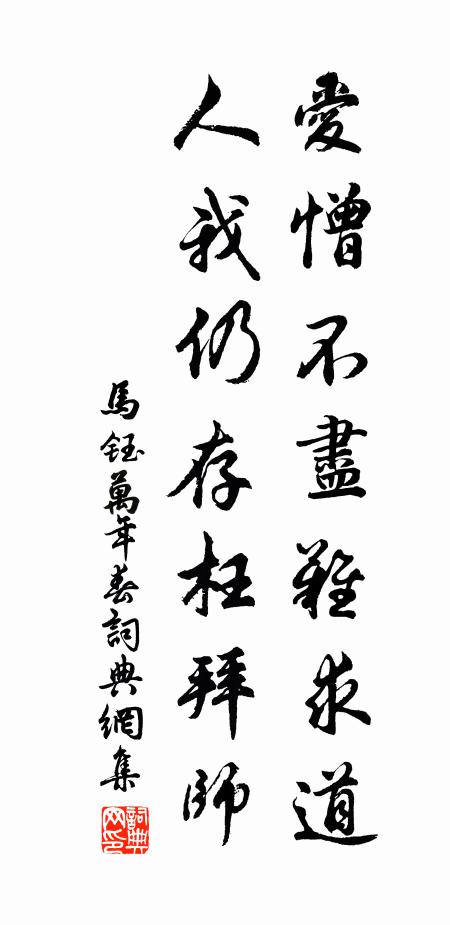 愛憎不盡難求道
人我仍存枉拜師
馬鈺萬年春詞典網集
詞典网印